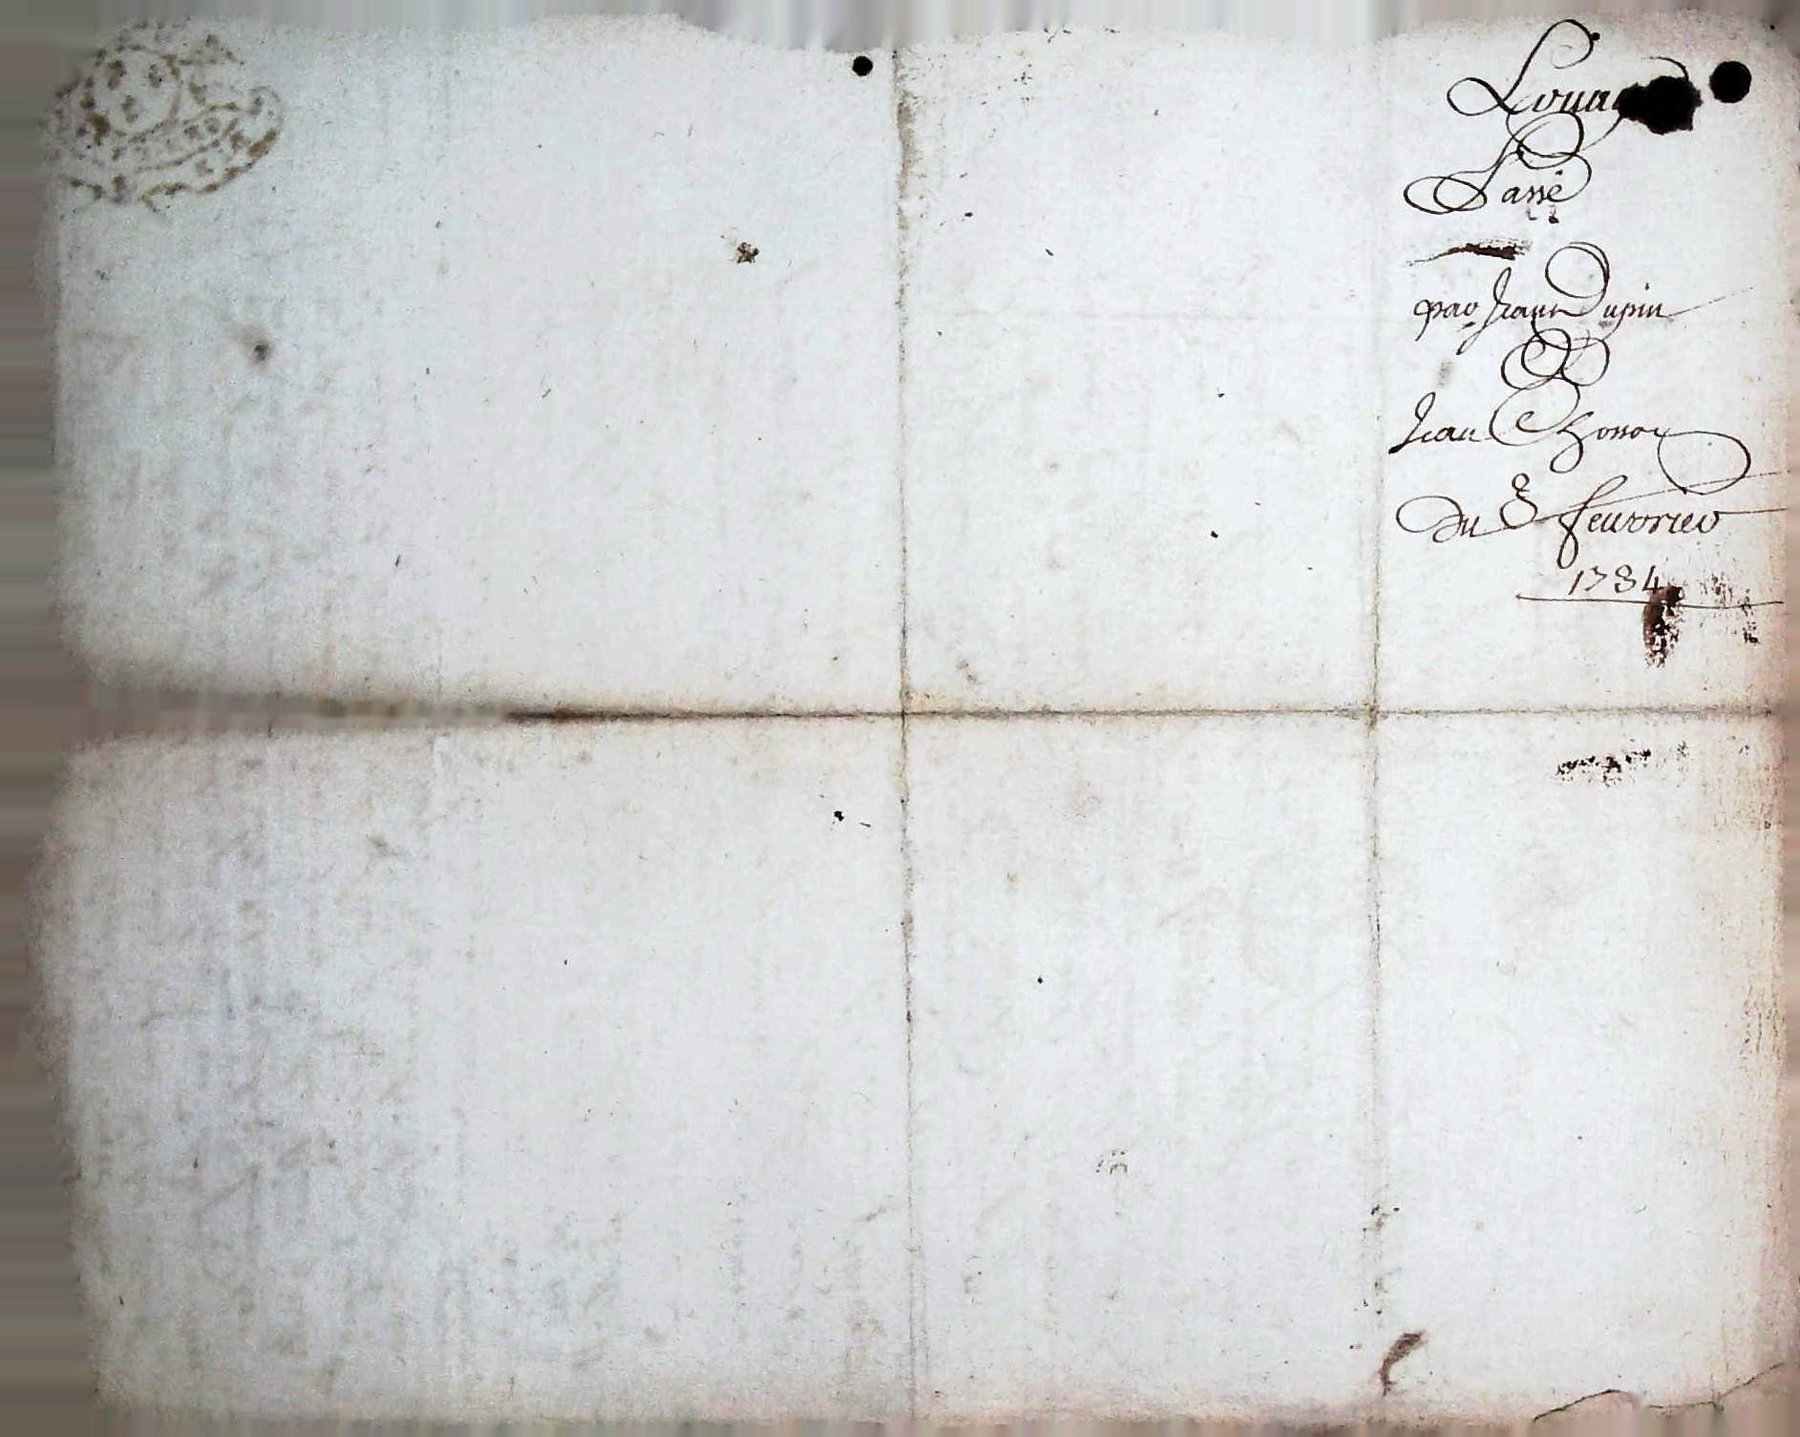 Louag
Passé
par Jean Dupin
Jean
du 8 feuvrier
1784